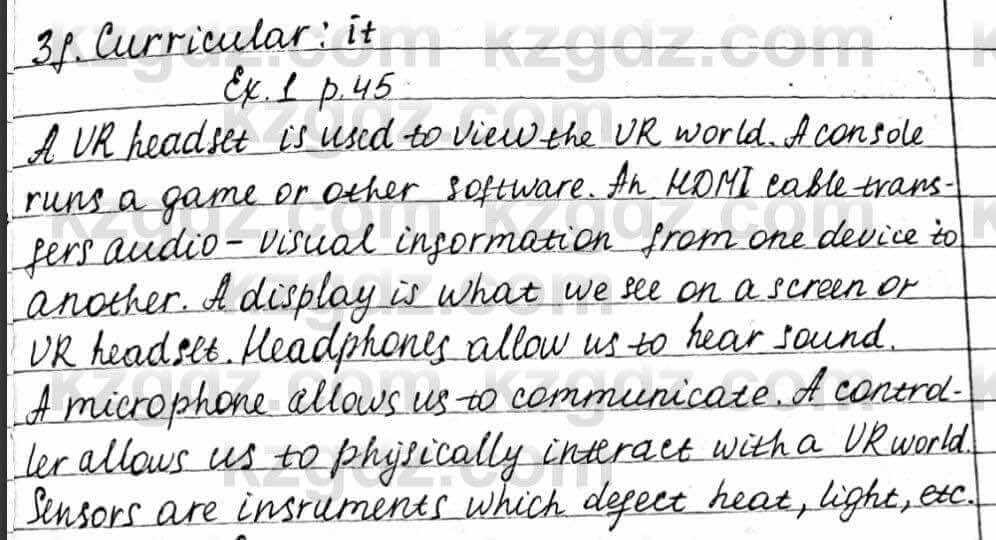 3f. Curricular: it
Ex. 1 p. 45
A VR headset is used to view the VR world. A console
runs a game or other software. An HDMI cable trans-
fers audio-visual information from one device to
another. A display is what we see on a screen or
VR headset. Headphones allow us to hear sound.
A microphone allows us to communicate. A control-
ler allows us to physically interact with a VR world.
Sensors are insruments which defect heat, light, etc.